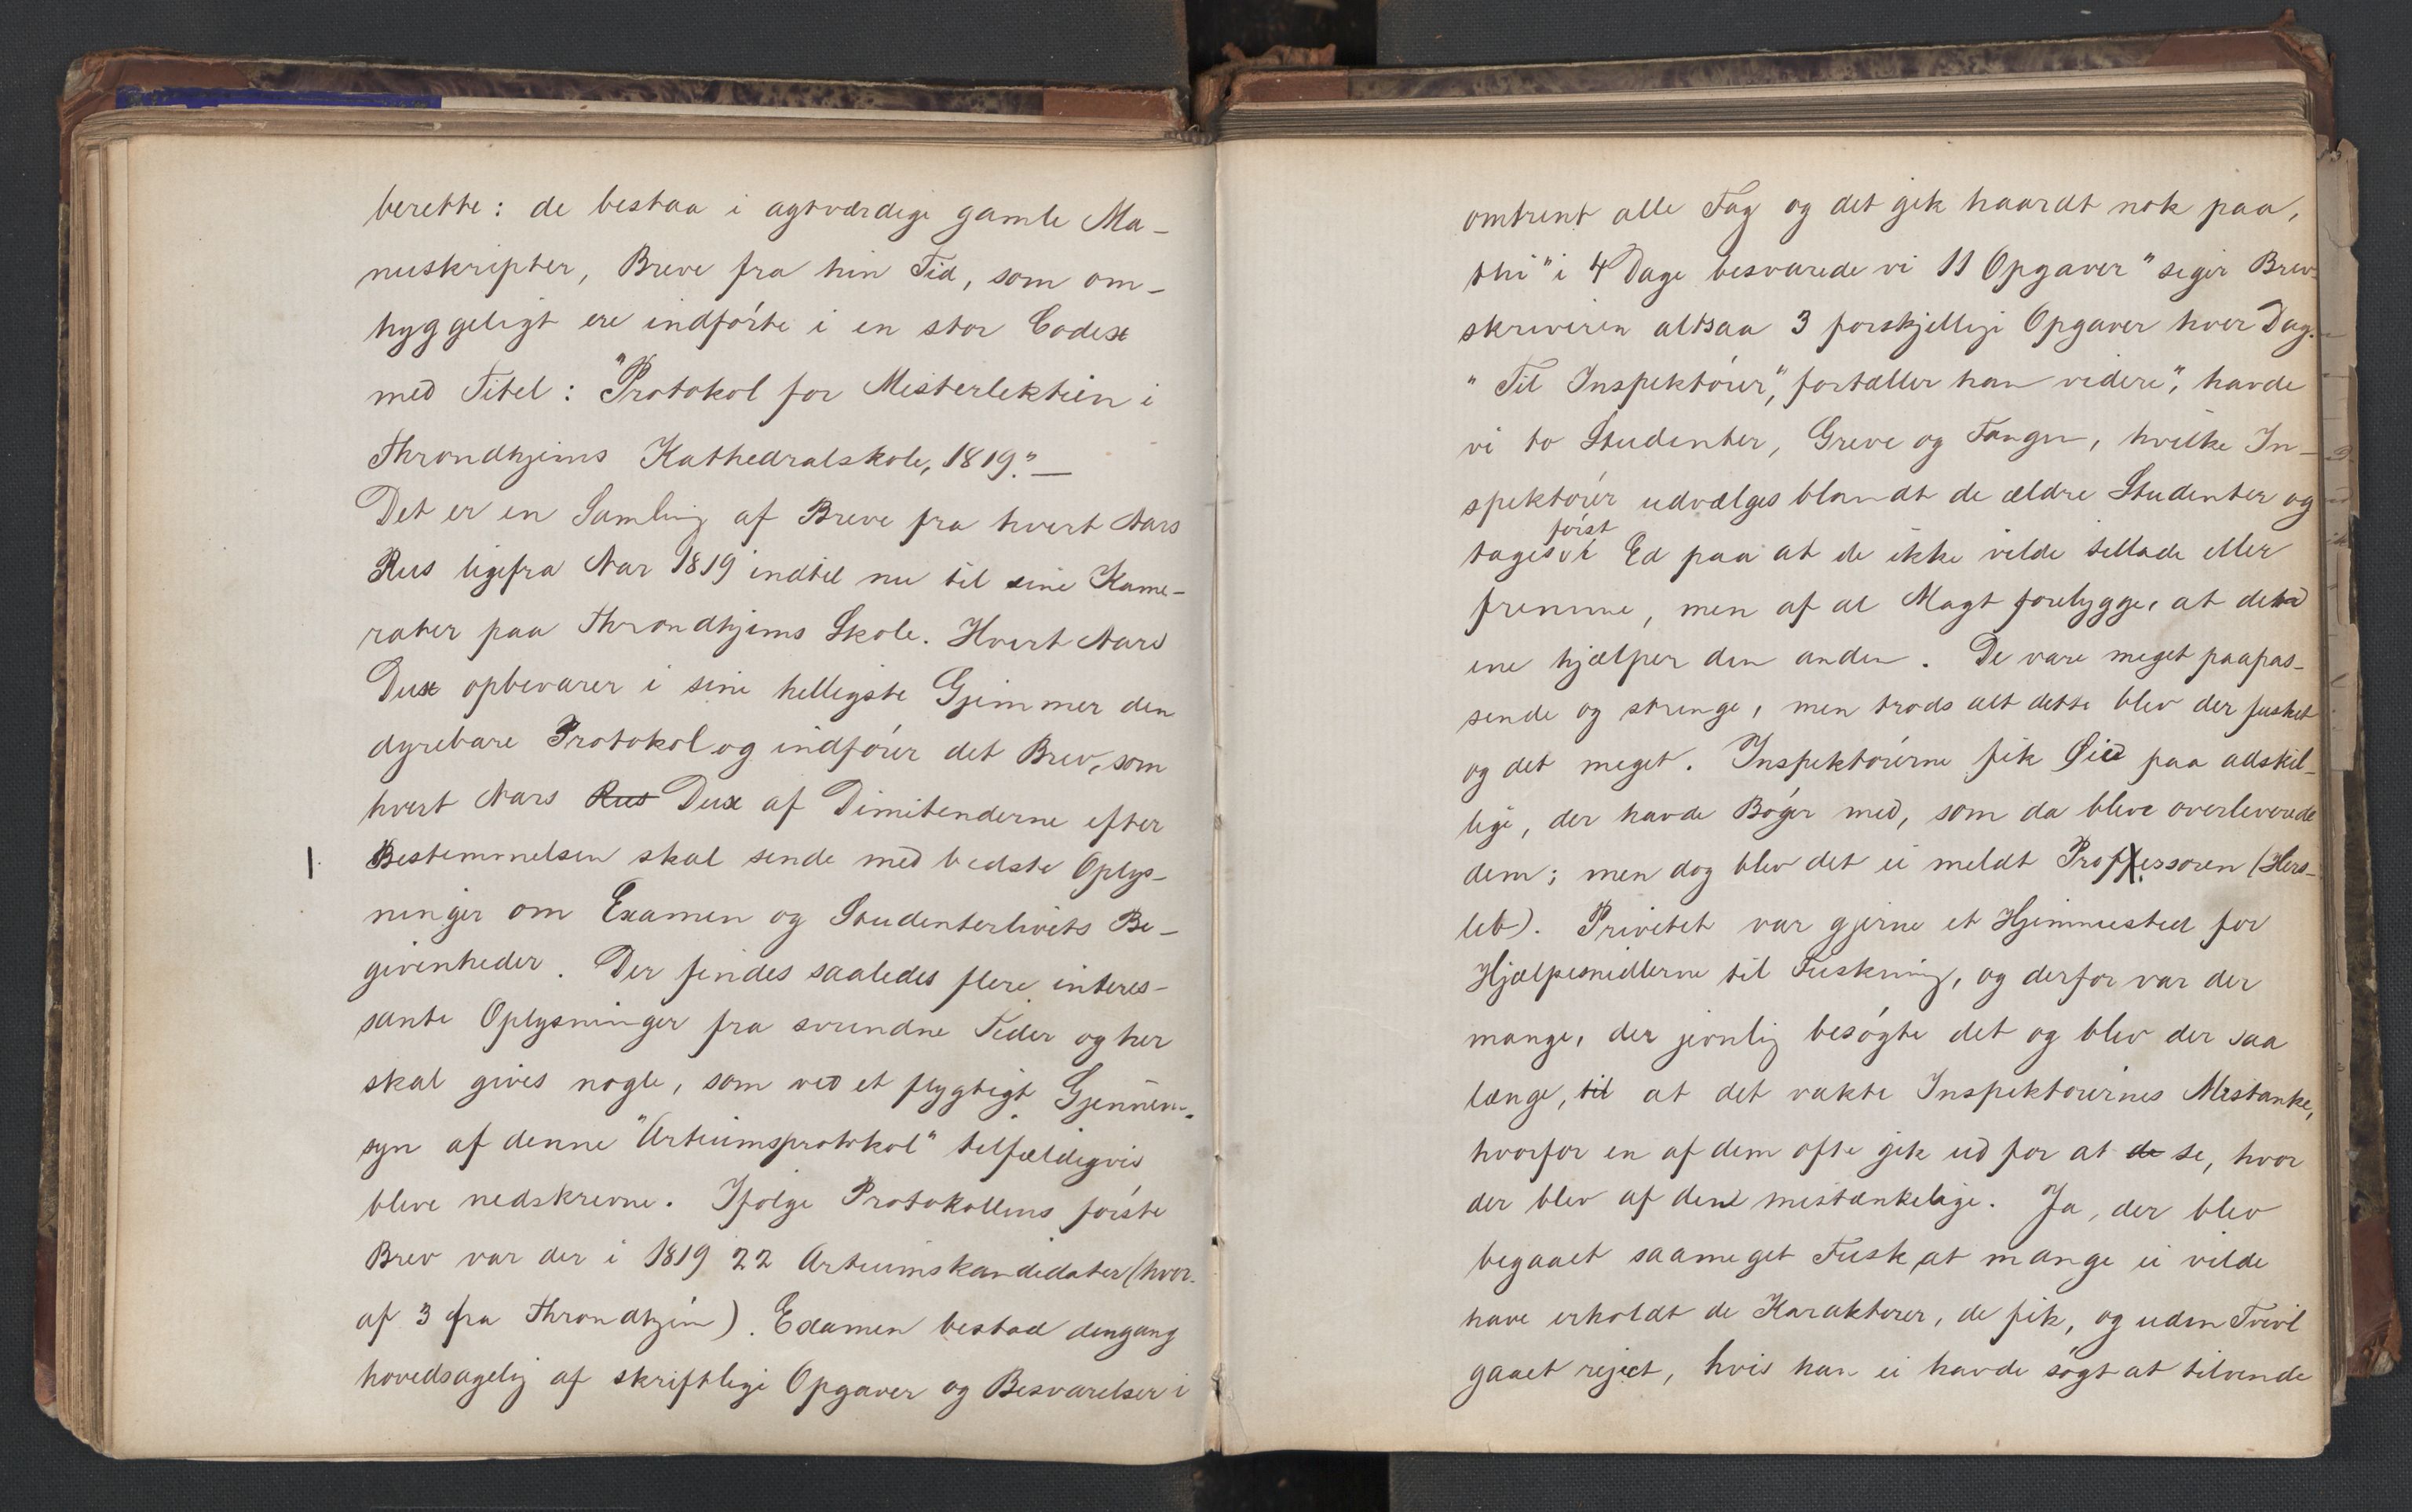 berette: de bestaa i agtværdige gamle Ma-
nuskripter, Breve fra hin Tid, som om-
hyggeligt ere indførte i en stor Codex
med Titel: "Protokol for Mesterlektien i
Throndhjems Kathedralskole, 1819."—
Det er en Samling af Breve fra hvert Aars
Rus ligefra Aar 1819 indtil nu til sine Kame-
rater paa Throndhjems Skole. Hvert Aars
Dux opbevarer i sine helligste Gjemmer den
dyrebare Protokol og indfører det Brev, som
hvert Aars Rus Dux af Dimitenderne efter
Bestemmelsen skal sende med bedste Oplys-
ninger om Examen og Studenterlivets Be-
givenheder. Der findes saaledes flere interes-
sante Oplysninger fra svundne Tider og her
skal gives nogle, som ved et flygtigt Gjennem-
syn af denne "Artiumsprotokol" tilfældigvis
bleve nedskrevne. Ifølge Protokollens første
Brev var der i 1819 22 Artiumskandidater (hvor-
af 3 fra Throndhjem). Examen bestod dengang
hovedsagelig af skriftlige Opgaver og Besvarelser i
omtrent alle Fag og det gik haardt nok paa,
thi "i 4 Dage besvarede vi 11 Opgaver" siger Brev-
skriveren altsaa 3 forskjellige Opgaver hver Dag.
"Til Inspektører", fortæller han videre", havde
vi to Studenter, Greve og Tangen, hvilke In-
spektører udvælges blandt de ældre Studenter og
først
tages i Ed paa at de ikke vilde tillade eller
fremme, men af al Magt forebygge, at den
ene hjælper den anden. De vare meget paapas-
sende og strenge, men trods alt dette blev der fusket
og det meget. Inspektørerne fik Øie paa adskil-
lige, der havde Bøger med, som da bleve overleverede
dem; men dog blev det ei meldt Professoren (Hers-
leb). Privetet var gjerne et Hjemmested for
Hjælpemidlerne til Fuskning, og derfor var der
mange, der jevnlig besøgte det og blev der saa
længe, til at det vakte Inspektørernes Mistanke,
hvorfor en af dem ofte gik ud for at de se, hvor
der blev af den mistænkelige. Ja, der blev
begaaet saameget Fusk, at mange ei vilde
have erholdt de Karakterer, de fik, og uden Tvivl
gaaet reject, hvis han ei havde søgt at tilvende